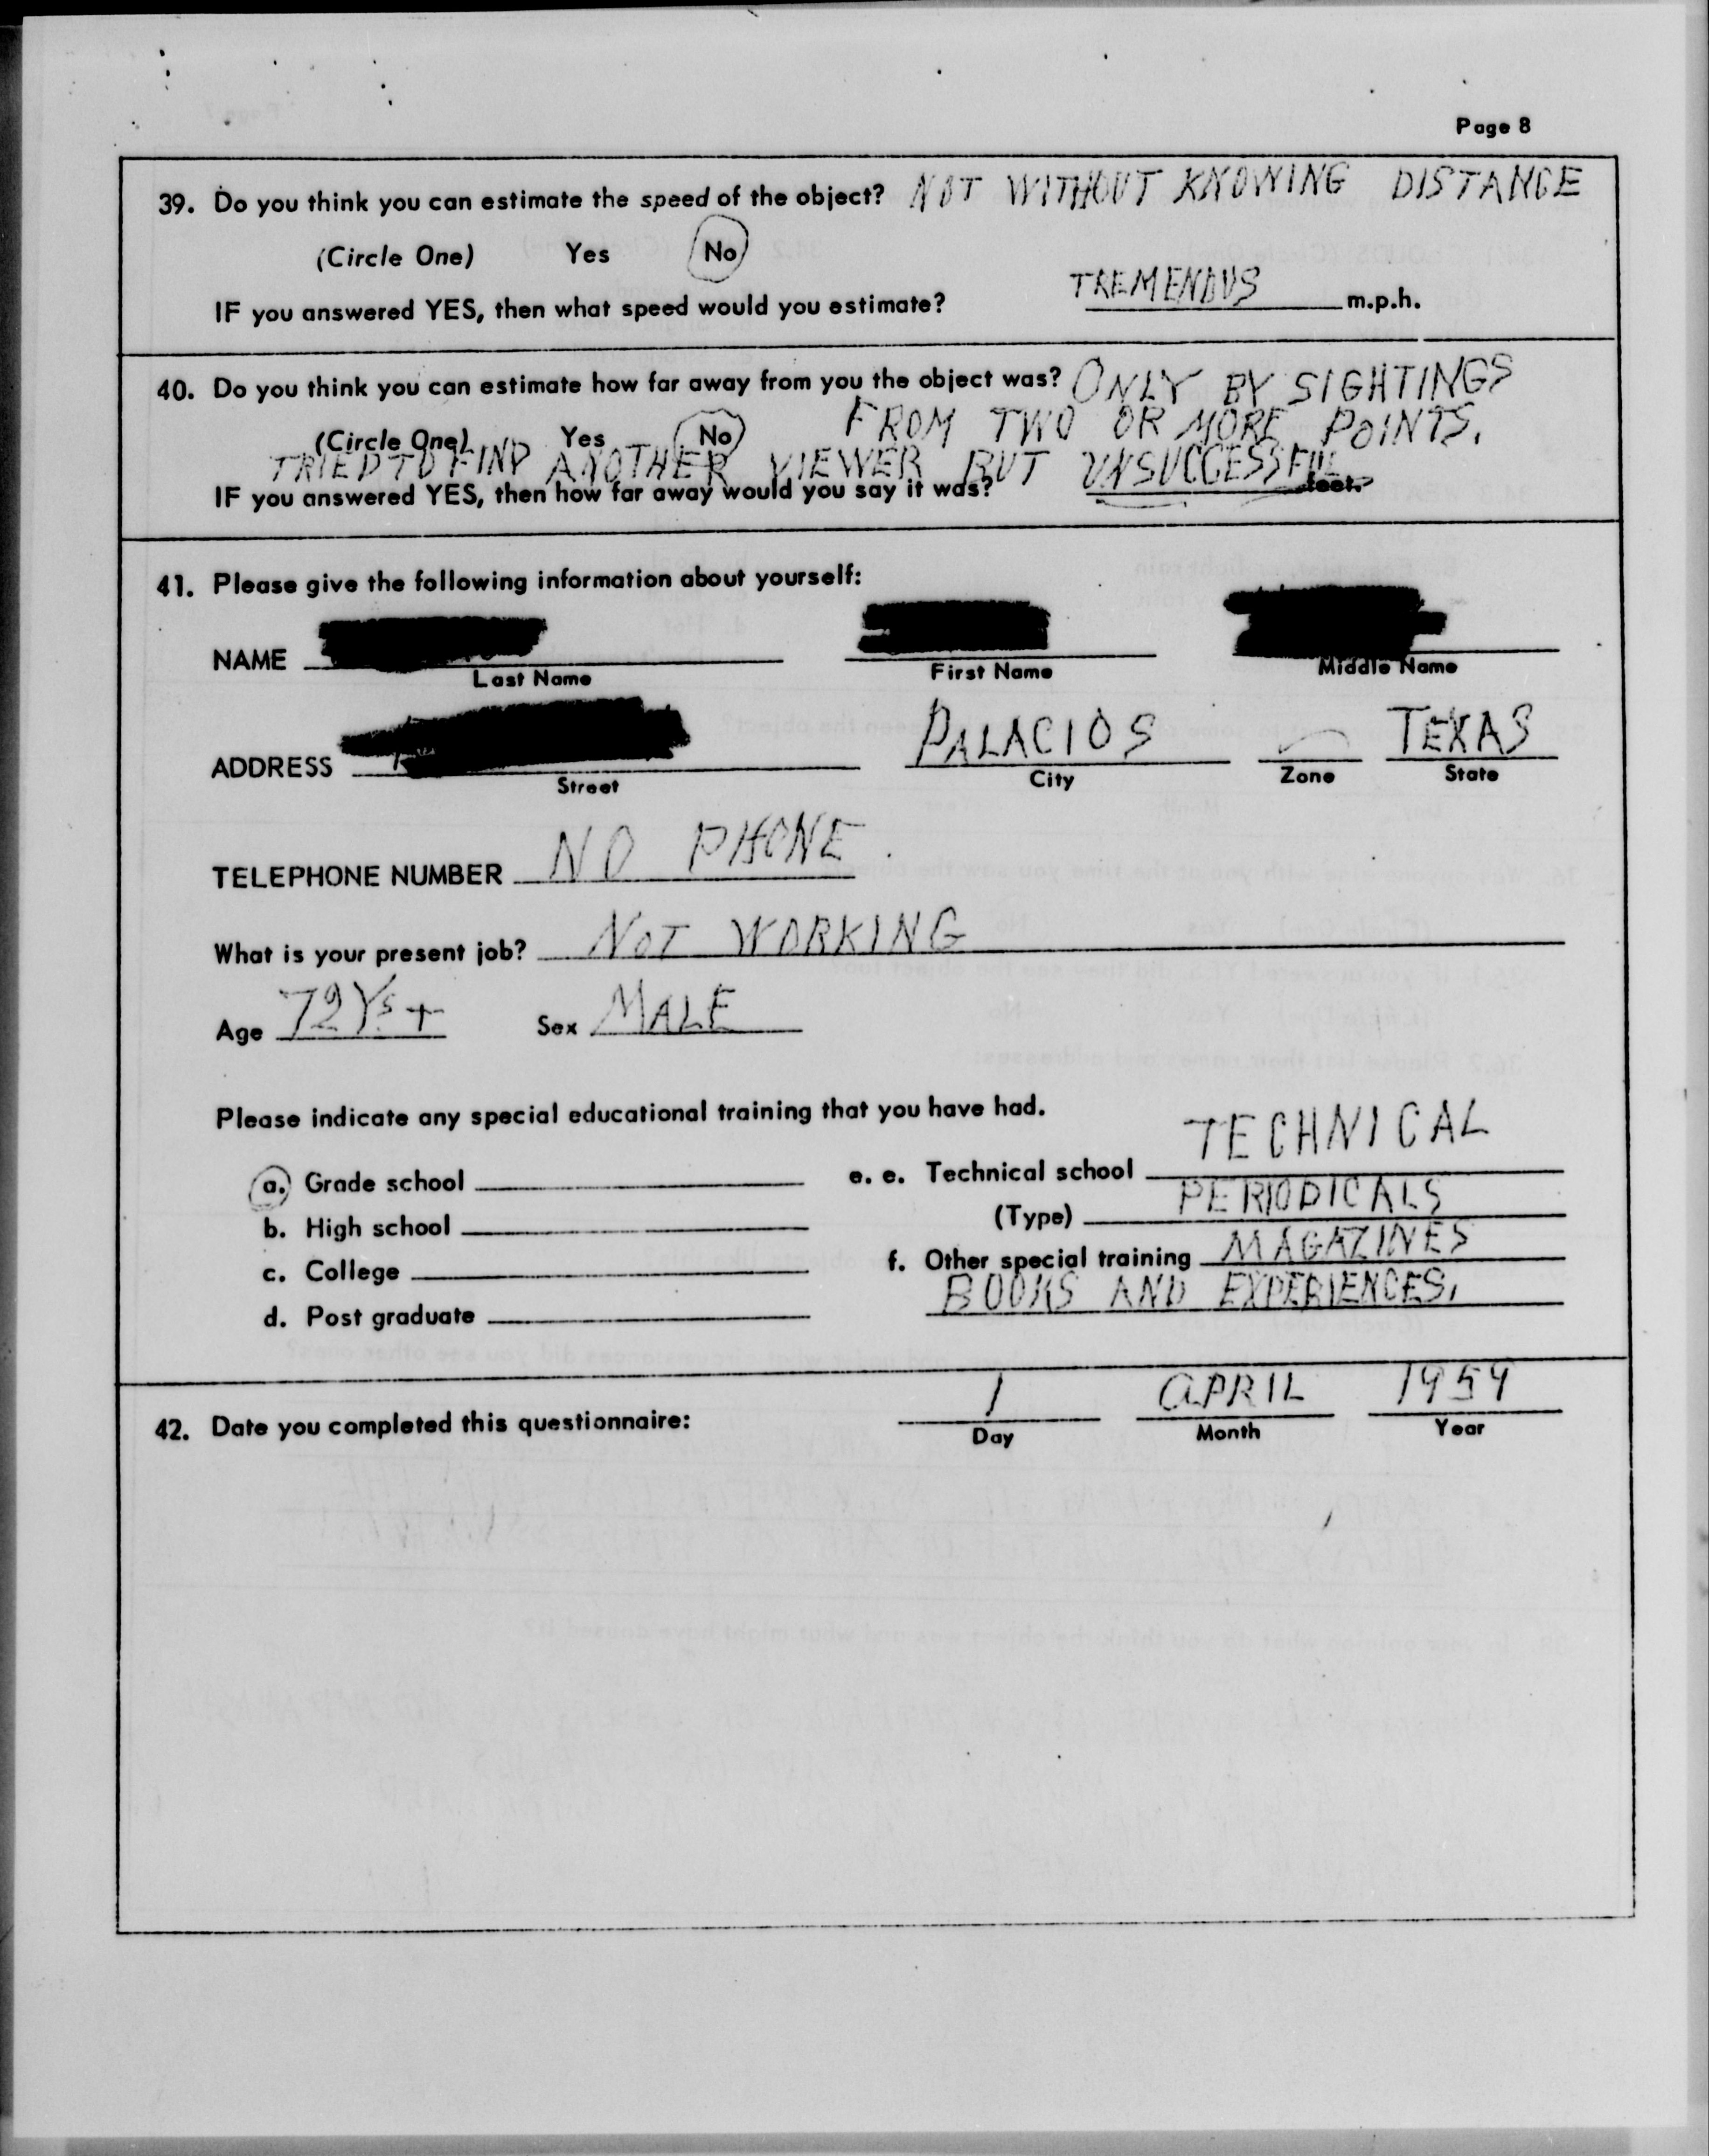 Page 8
39. Do you think you can estimate the speed of the object? NOT WITHOUT KNOWING DISTANCE
(Circle One) Yes No
IF you answered YES, then what speed would you estimate? TREMENDUS m.p.h.
40. Do you think you can estimate how far away from you the object was? ONLY BY SIGHTINGS
(Circle One) Yes No FROM TWO OR MORE POINTS.
TRIED TO FIND ANOTHER VIEWER BUT UNSUCCESSFUL
IF you answered YES, then how far away would you say it was? feet.
41. Please give the following information about yourself:
NAME
Last Name First Name Middle Name
ADDRESS PALACIOS TEXAS
Street City Zone State
TELEPHONE NUMBER NO PHONE.
What is your present job? NOT WORKING
Age 72 Ys + Sex MALE
Please indicate any special educational training that you have had.
TECHNICAL
a. Grade school e. e. Technical school
PERIODICALS
b. High school (Type)
c. College f. Other special training MAGAZINES
BOOKS AND EXPERIENCES.
d. Post graduate
42. Date you completed this questionnaire: 1 APRIL 1959
Day Month Year